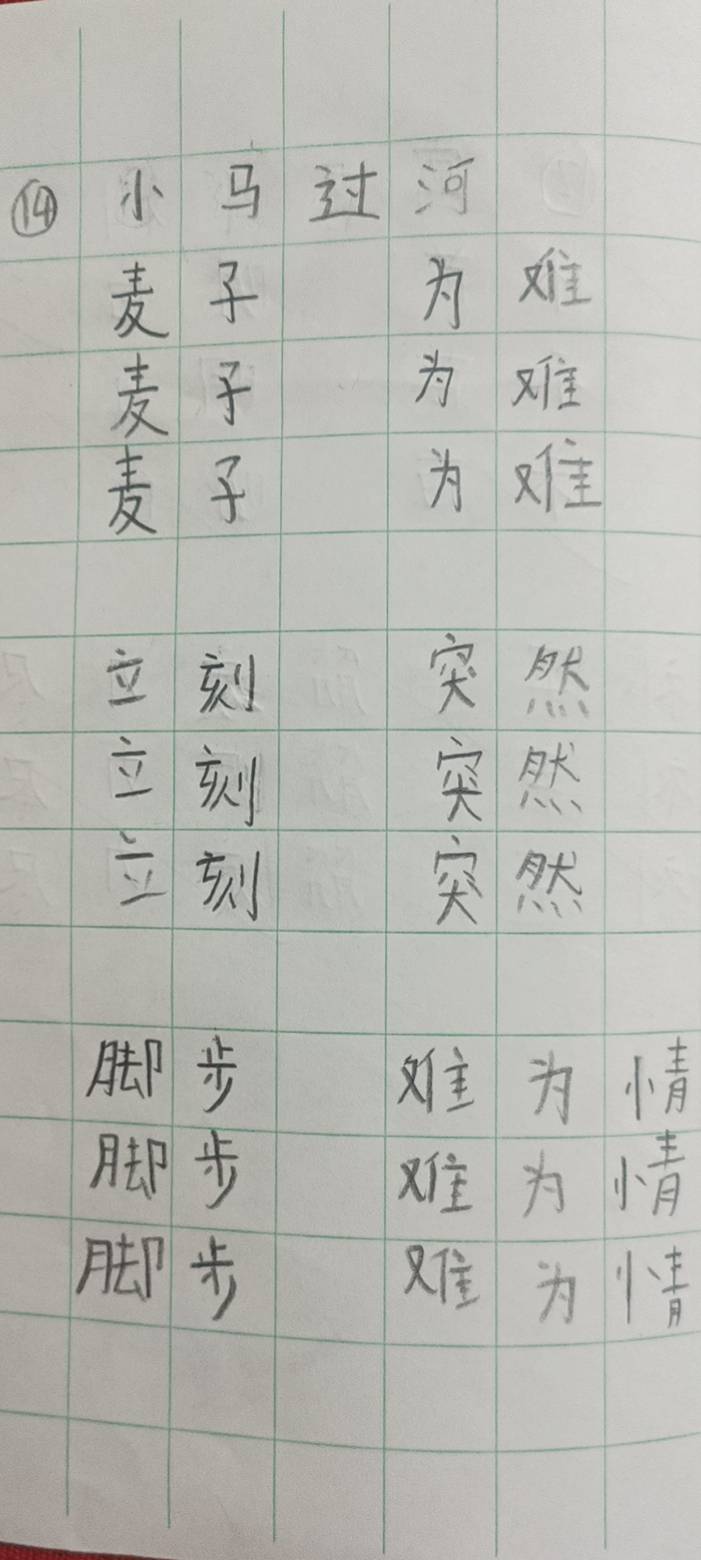 ⑭ 小马过河
麦子 为难
麦子 为难
麦子 为难
立刻 突然
立刻 突然
立刻 突然
脚步 难为情
脚步 难为情
脚步 难为情